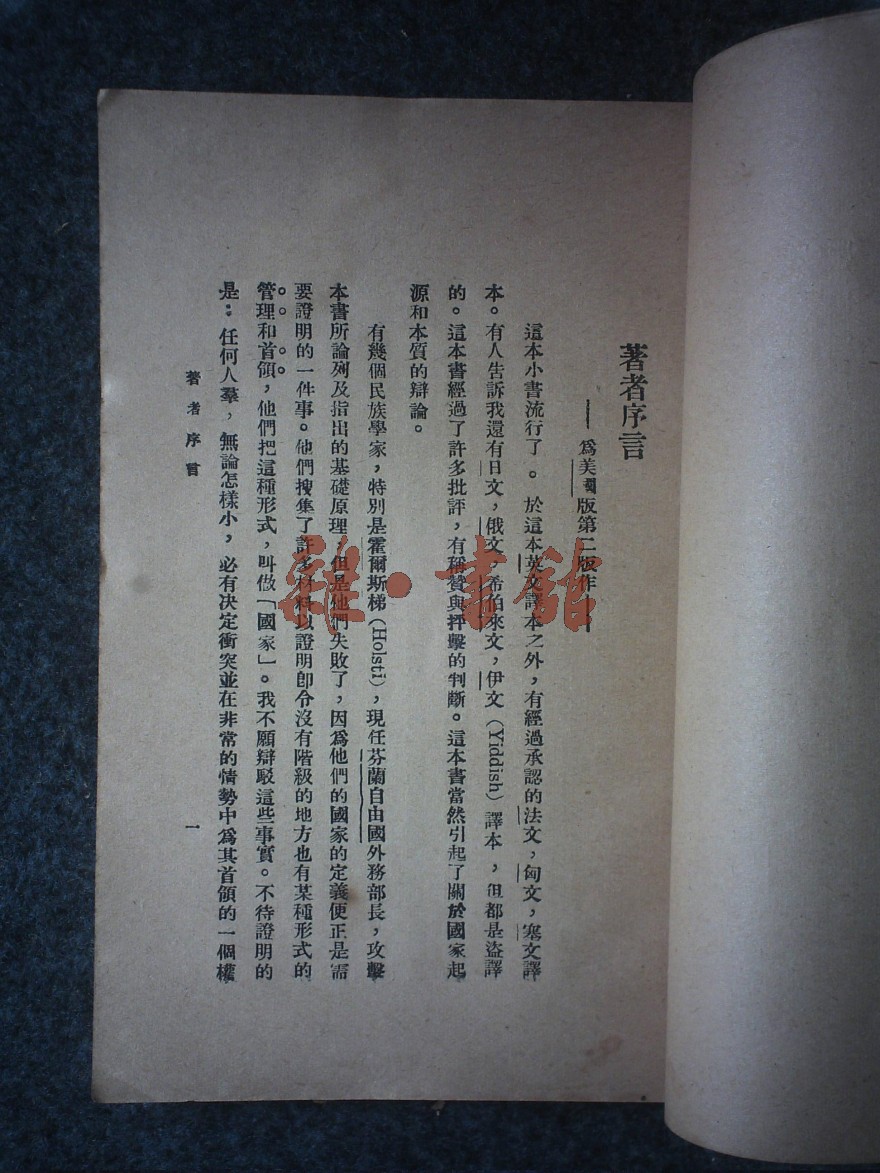 著者序言
——爲美國版第二版作——
這本小書流行了。於這本英文譯本之外，有經過承認的法文，匈文，塞文譯
本。有人告訴我還有日文，俄文，希伯來文，伊文（Yiddish）譯本，但都是盜譯
的。這本書經過了許多批評，有稱贊與抨擊的判斷。這本書當然引起了關於國家起
源和本質的辯論。
有幾個民族學家，特別是霍爾斯梯（Holsti），現任芬蘭自由國外務部長，攻擊
本書所論列及指出的基礎原理；但是他們失敗了，因爲他們的國家的定義便正是需
要證明的一件事。他們搜集了許多材料以證明卽令沒有階級的地方也有某種形式的
管理和首領，他們把這種形式，叫做「國家」。我不願辯駁這些事實。不待證明的
是：任何人羣，無論怎樣小，必有決定衝突並在非常的情勢中爲其首領的一個權
著者序言
一
雜·書館